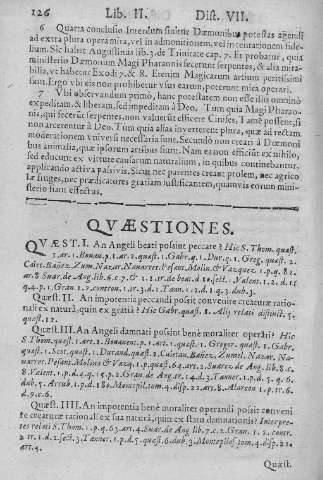 126 Lib. II. Dist. VII.
6 Quarta conclusio. Interdum sinitur Dæmonibus potestas agendi
ad extra plura opera mira, vel in admonitionem, vel in tentationem fide-
lium. Sic habet Augustinus lib. 3. de Trinitate cap. 7. Et probatur, quia
ministerio Dæmonum Magi Pharaonis fecerunt serpentes, & alia mira-
bilia, vt habetur Exodi 7. & 8. Etenim Magicarum artium peritissimi
sunt. Ergo vbi eis non prohibetur vsus earum, poterunt mira operari.
7 Vbi observandum primò, hanc potestatem non esse illis omnino
expeditam, & liberam, sed impeditam à Deo. Tum quia Magi Pharao-
nis, qui fecerũt serpentes, non valuerũt efficere Cinifes. Tamẽ possent, si
non arcerentur à Deo. Tum quia alias inverterent plura, quæ ad rectam
moderationem Vniversi necessaria sunt. Secundò non creari à Dæmoni
bus animalia, quæ ipsorum artibus sunt. Nam ea non efficiunt ex nihilo,
sed educunt ex virtute causarum naturalium, in quibus continebantur,
applicando activa passivis. Sicut nec parentes creant prolem, nec agrico
læ fruges, nec prædicatores gratiam justificantem, quamvis eorum mini-
sterio fiant effectus.
QVÆSTIONES.
QVÆST. I. An Angeli beati possint peccare? Hic S. Thom. quæst.
1. ar. 1. Bonau. p. 1. ar. 2. quæst. 1. Gabr. q. 1. Dur. q. 1. Greg. quæst. 2.
Caiet. Bañez. Zum. Nazar. Nauarret. Pesant. Molin. & Vazquez.
Quæst. II. An impotentia peccandi possit convenire creaturæ ratio-
nali ex natura, quin ex gratia? Hic Gabr. quæst. 1. Alij relati
quæst. 12.
Quæst. III. An Angeli damnati possint benè moraliter operari? Hic
S. Thom. quæst. 1. art. 2. Bonauent. p. 1. art. 1. quæst. 1. Gregor. quæst. 1. Gabr.
quæst. 1. Scot. quæst. 1. Durand. quæst. 2. Caietan. Bañez, Zumel. Nazar. Na-
uarret. Pesant. Molina & Vazq. 1. p. q. 64. art. 2. Suarez de Ang. lib. 8. c.
d. 9. c. 6.
Quæst. IIII. An impotentia benè moraliter operandi possit conveni
re creaturæ rationali ex sua natura, quin ex statu damnationis? Interpre-
tes relati S. Thom. 1. p. q. 63. art. 4. Suar. de Ang. lib. 7. c. 2. Gran. 1. 2. contr.
2. tr. 1. d. 2. sect. 3. Tanner. 1. p. d. 5. quæst. 6. dub. 3. Montepilos. tom. 4. d. 20
art. 4.
Quæst.